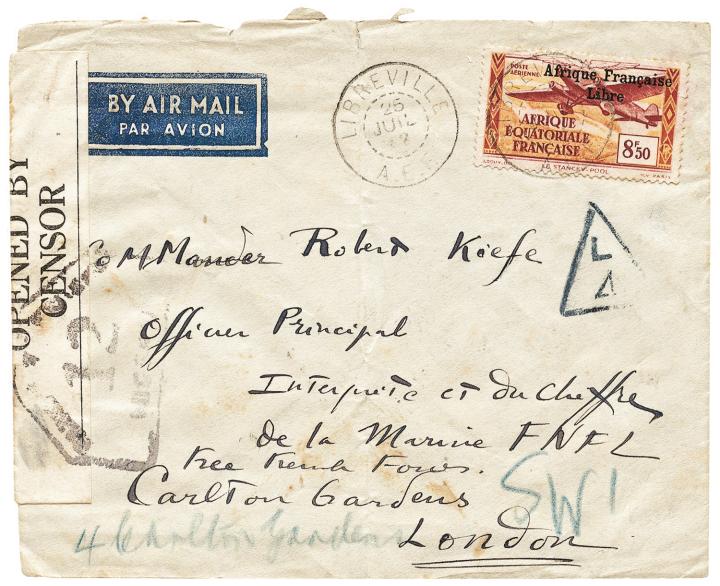 OPENED BY
CENSOR
BY AIR MAIL
PAR AVION
LIBREVILLE
25
JUIL
42
A.E.
POSTE
AÉRIENNE
Afrique Française
Libre
AFRIQUE
ÉQUATORIALE
FRANÇAISE
8F50
LE STANLEY-POOL
L
4
12
Commander Robert Kiefe
Officier Principal
Interprète et du Chiffre
de la Marine FNFL
Free French Forces.
Carlton Gardens
SW1
4 Carlton Gardens
London